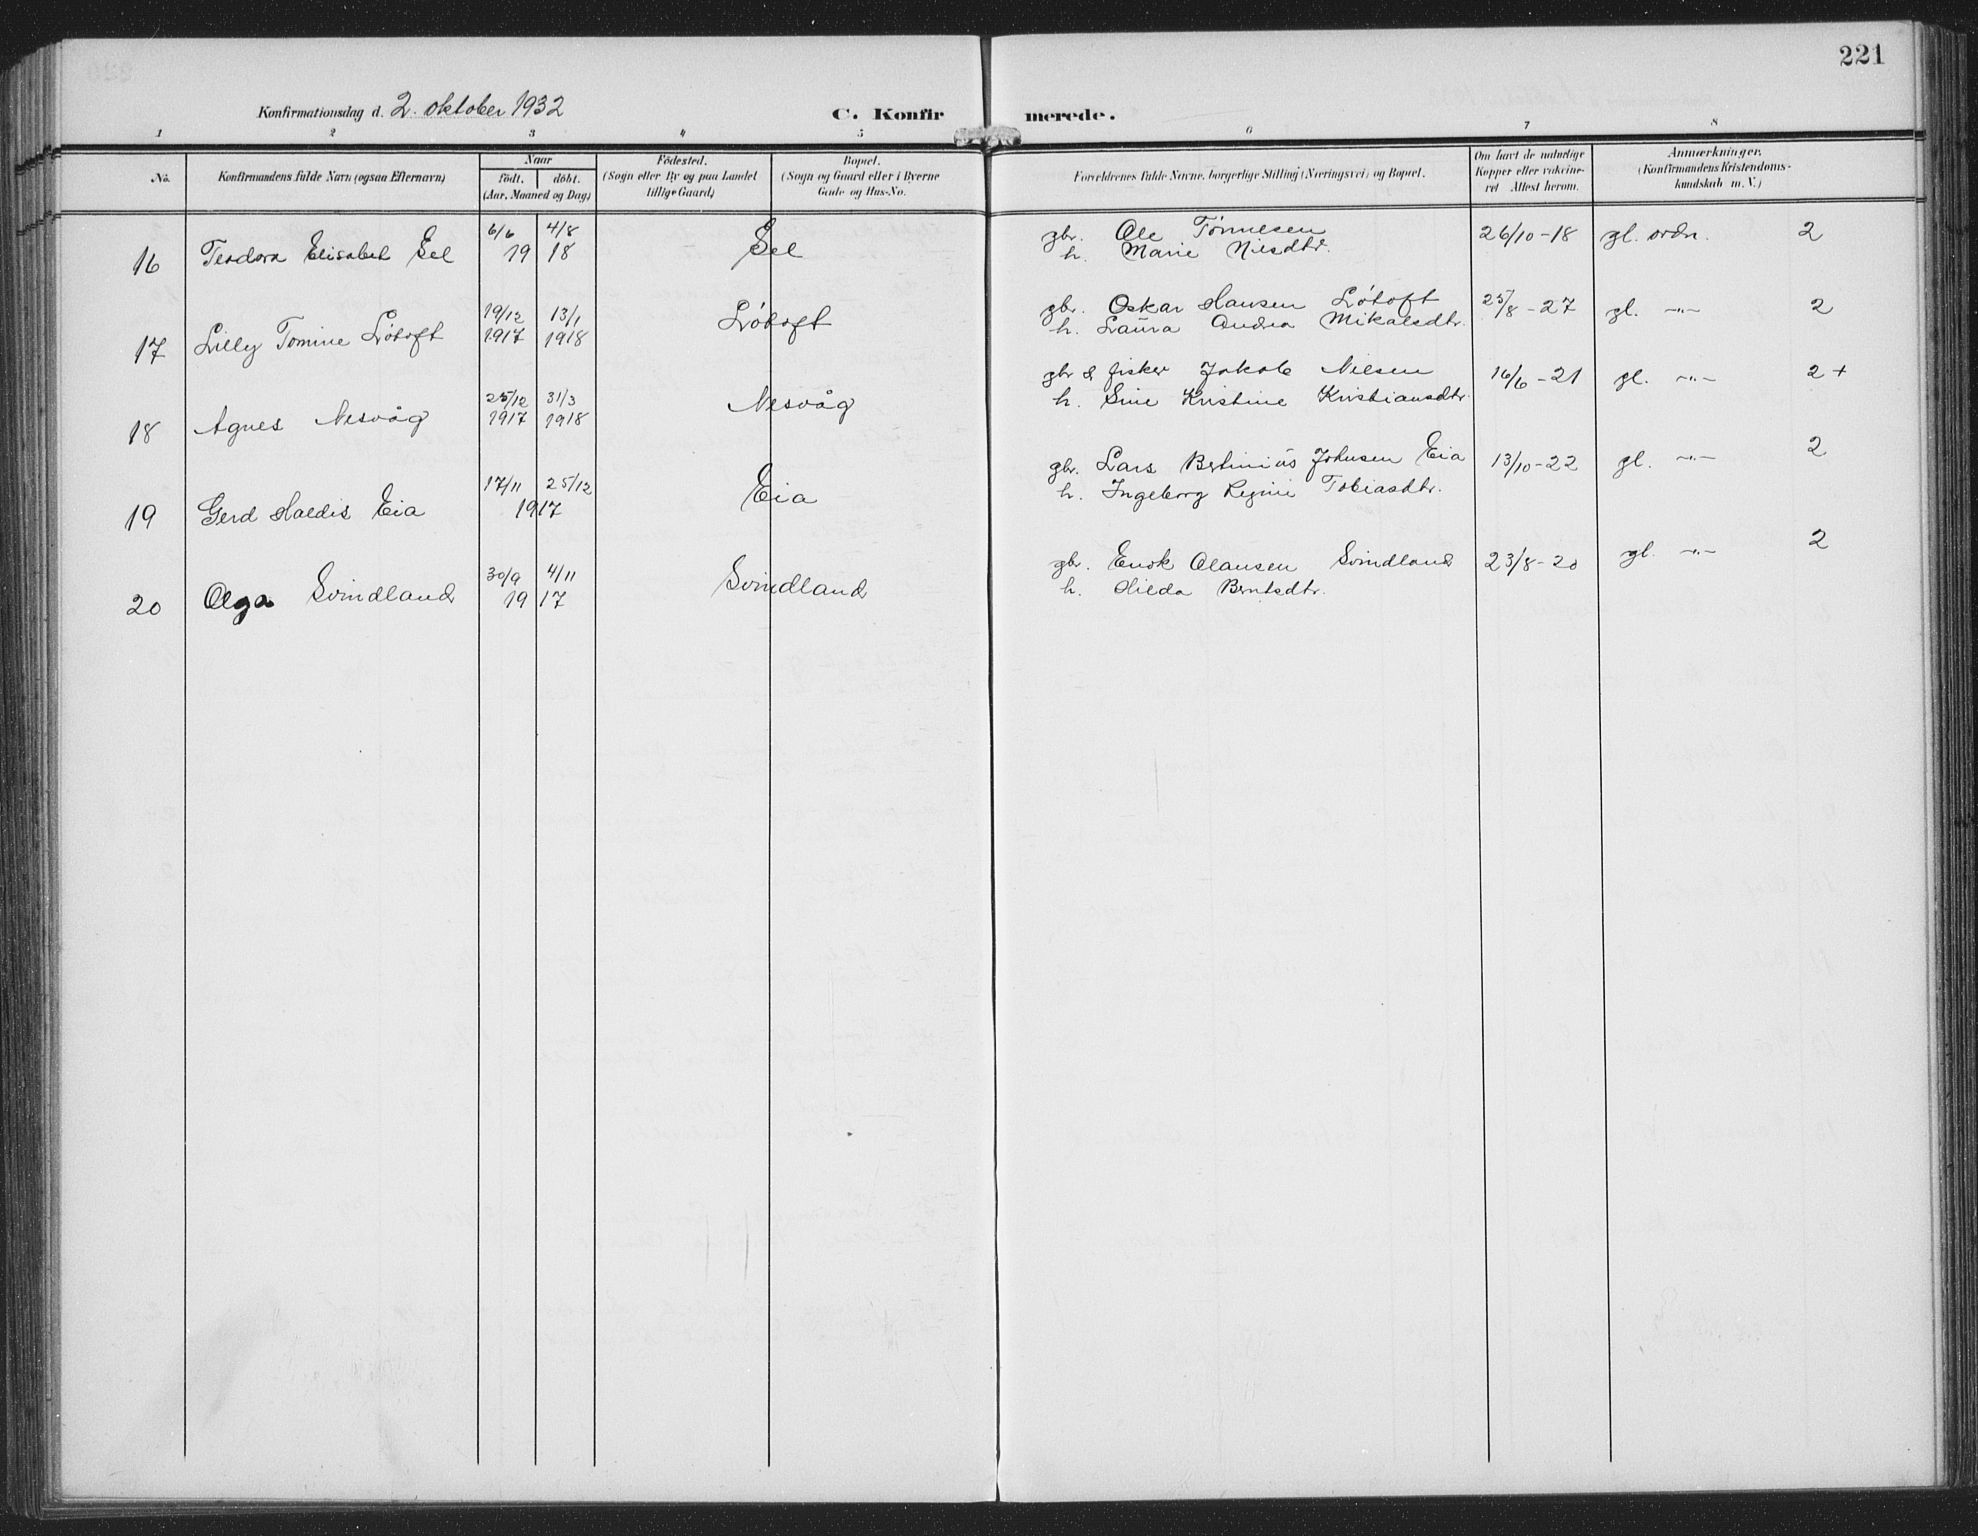 221
Konfirmationsdag d. 2. oktober 1932
C. Konfirmerede.
1 2 3 4 5 6 7 8
No. Konfirmandens fulde Navn (ogsaa Efternavn) Naar født. døbt. (Aar, Maaned og Dag) Fødested. (Sogn eller By og paa Landet tillige Gaard) Bopæl. (Sogn og Gaard eller i Byerne Gade og Hus-No. Forældrenes fulde Navne, borgerlige Stilling (Næringsvei) og Bopæl. Om havt de naturlige Kopper eller vakcineret Attest herom. Anmærkninger. (Konfirmandens Kristendomskundskab m. V.)
16 Teodora Elisabet Sel 6/6 4/8 1918 Sel gbr. Ole Tønnesen 26/10-18 gl. ordn. 2
h. Marie Nilsdtr.
17 Lilly Tomine Løtoft 19/12 1917 13/1 1918 Løtoft gbr. Oskar Hansen Løtoft 25/8-27 gl. -"- 2
h. Laura Andrea Mikalsdtr.
18 Agnes Nesvåg 25/12 1917 31/3 1918 Nesvåg gbr & fisker Jakob Nilsen 16/6-21 gl. -"- 2+
h. Sine Kristine Kristiansdtr.
19 Gerd Haldis Eia 17/11 25/12 1917 Eia gbr. Lars Bertinius Johnsen Eia 13/10-22 gl. -"- 2
h. Ingeborg Regine Tobiasdtr.
20 Olga Svindland 30/9 4/11 1917 Svindland gbr. Enok Olausen Svindland 23/8-20 gl. -"- 2
h. Hilda Berntsdtr.